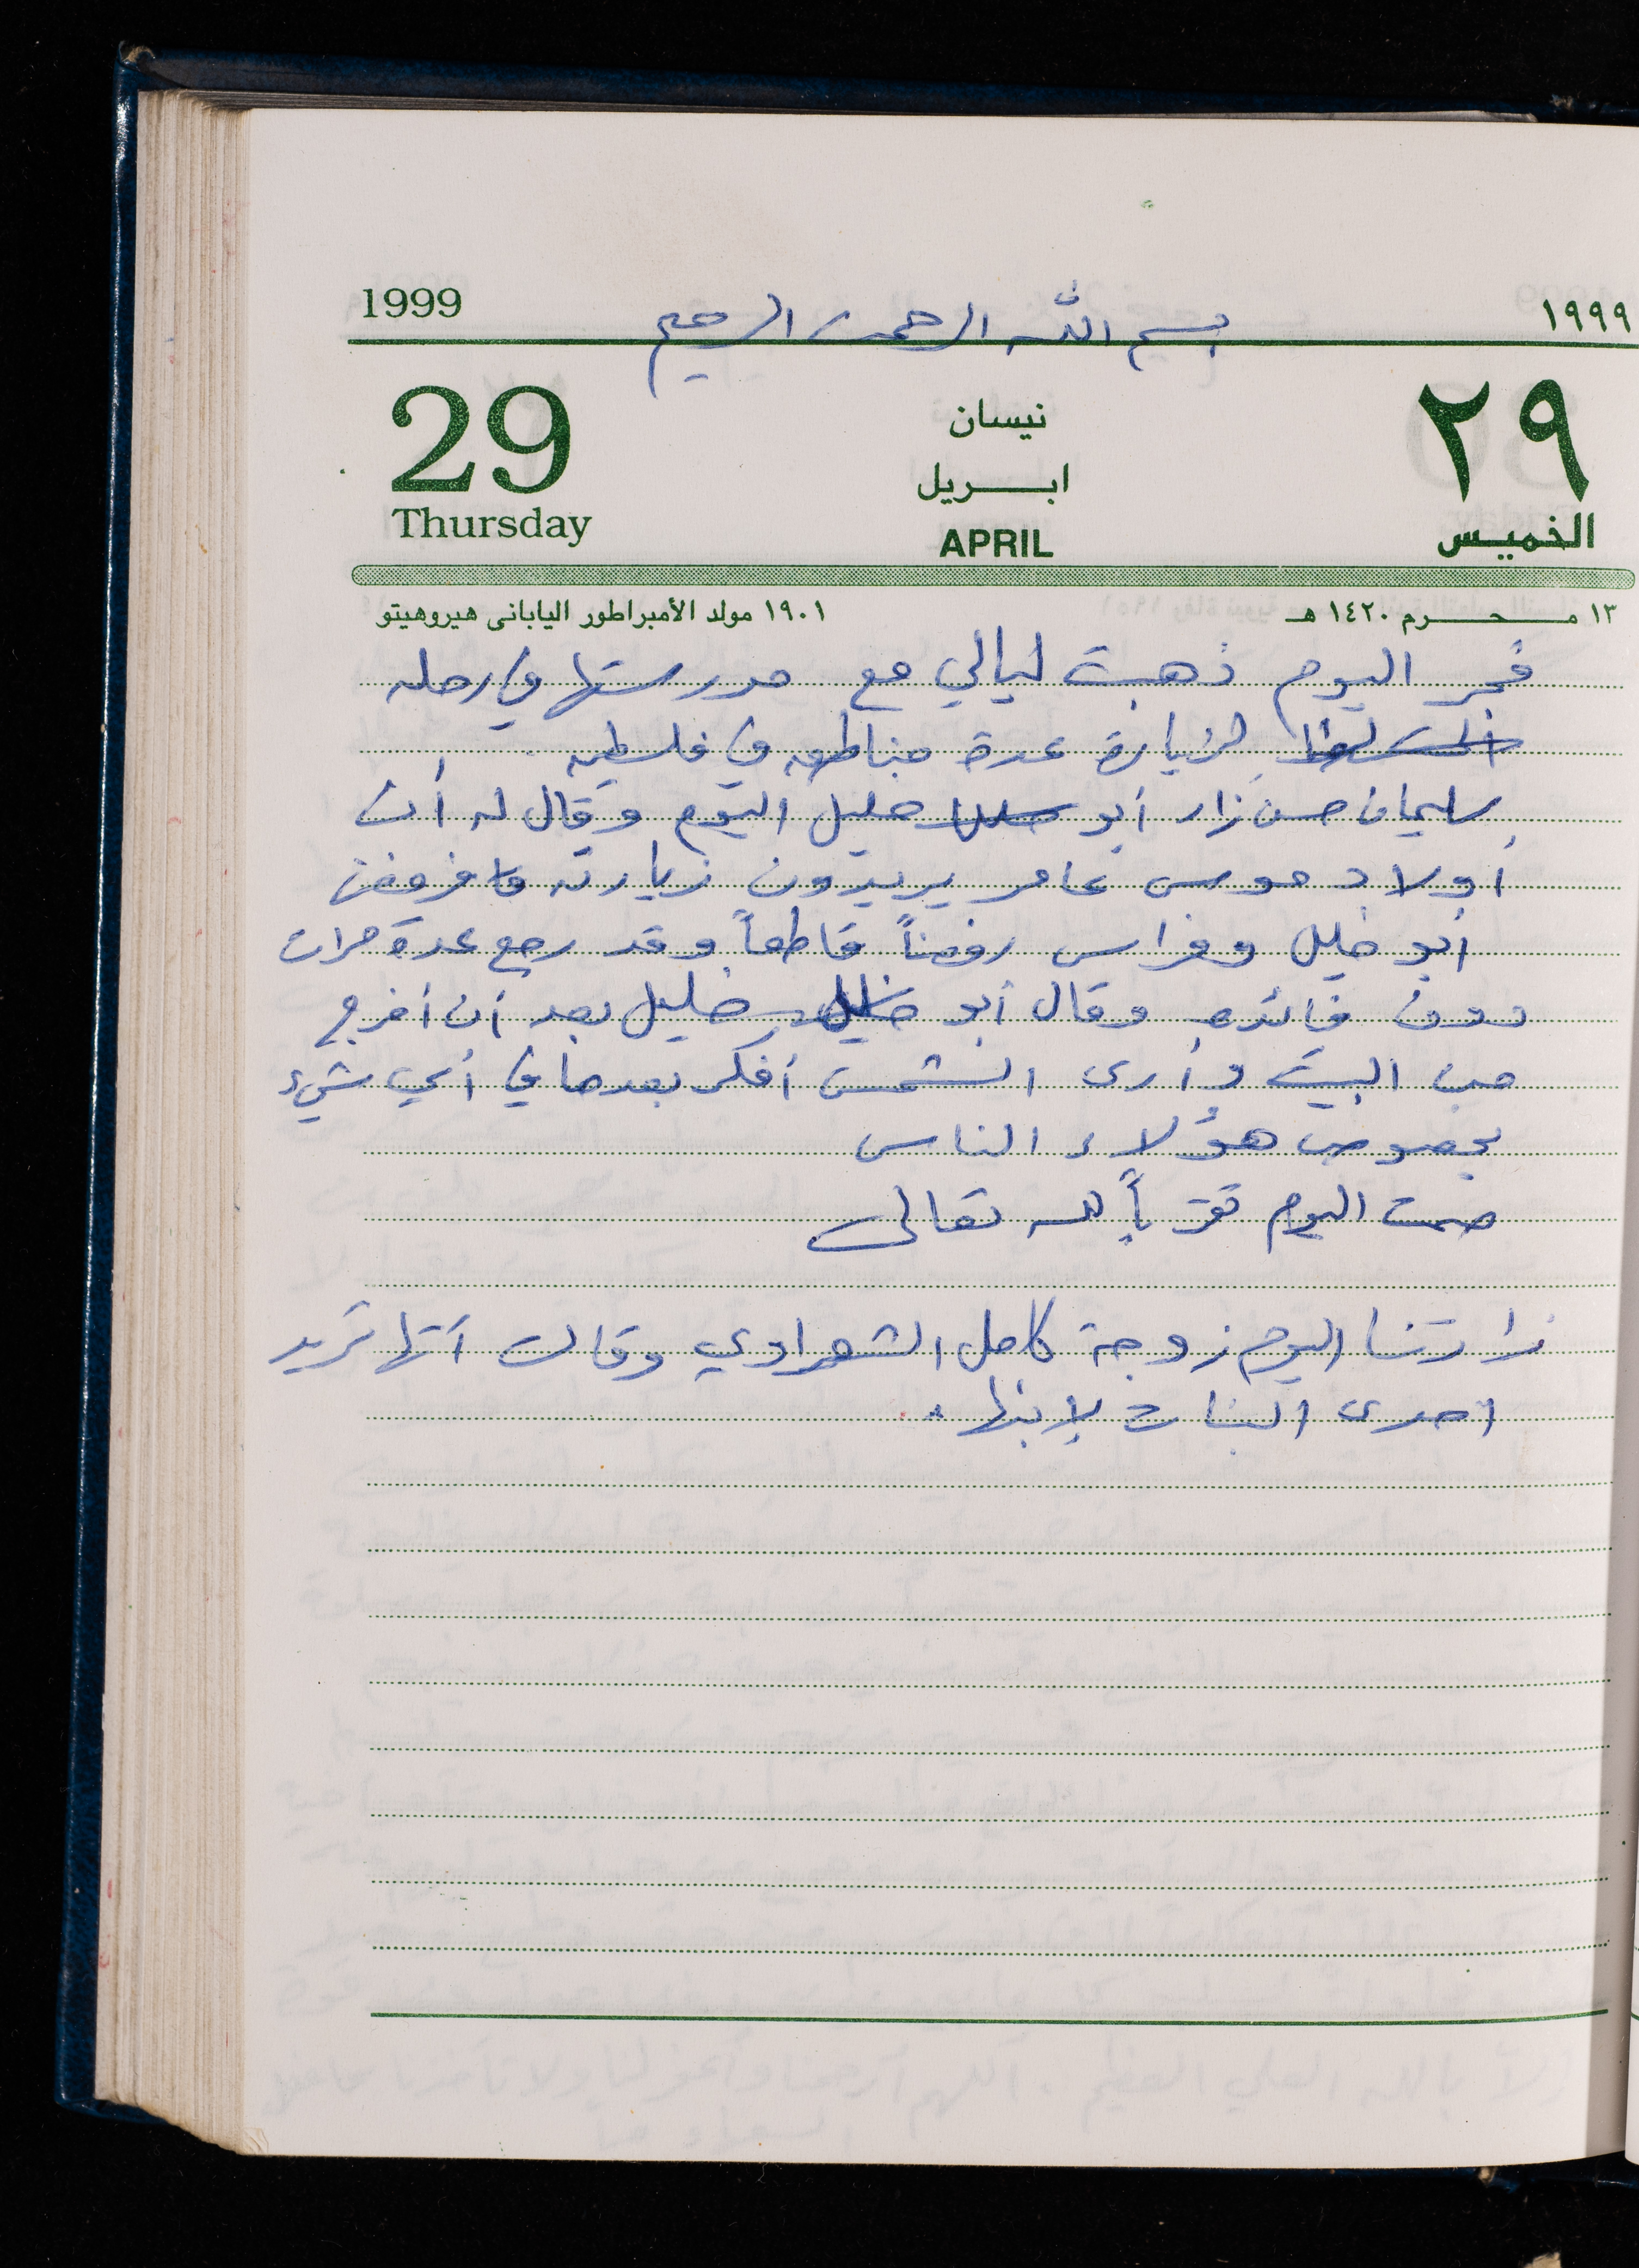 بسم الله الرحمن الرحيم
1999 ١٩٩٩
29 نيسان ٢٩
ابـــريل
Thursday APRIL الخميس
١٣ مـــحـــرم ١٤٢٠ هـ ١٩٠١ مولد الأمبراطور اليابانى هيروهيتو
فجر اليوم ذهبت ليالي مع مدرستها في رحله
لزيارة عدة مناطق في فلسطين
سليمان حسن زار أبو خليل اليوم وقال له أن
أولاد موسى عامر يريدون زيارته فرفض
أبو خليل وفراس رفضاً قاطعاً وقد رجع عدة مرات
دون فائده وقال أبو خليل بعد أن أخرج
من البيت وأرى الشمس أفكر بعدها في أي شيء
بخصوص هؤلاء الناس
صمت اليوم تقرباً لله تعالى
زارتنا اليوم زوجة كامل الشعراوي وقالت أنها تريد
احدى البنات لإبنها.